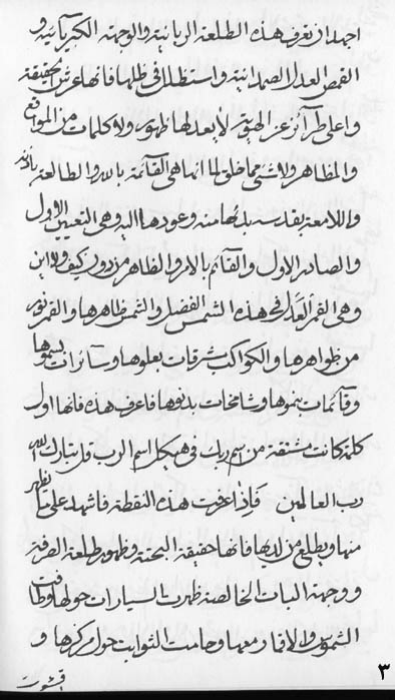 اجهد ان تعرف هذه الطلعة الربانية والوجهة الكبريائية و
القمص العدل الصمدانية واستظلل في ظلها فانها عرش الحقيقة
واعلى طرائز عز الهوية لا بعد لها ظهور ولا كلمات من المواقع
والمظاهر ولا شيء مما خلق انما هي القائمة بالله والطالعة باذنه
واللامعة بقدسه بدئها منه وعودها اليه وهي التعيين الاول
والصادر الاول والقائم بالامر والظاهر من دون كيف ولا اين
وهي القمر العدل في هذه الشمس الفضل والشمس ظاهرها والقمر نور
من ظواهرها والكواكب مشرقات بعلوها وسائرات بسموها
وقائمات بنموها وشامخات بدنوها فاعرف هذه فانها اول
كلمة كانت مشتقة من اسم ربك في هيكل اسم الرب قل تبارك الله
رب العالمين فاذا عرفت هذه النقطة فاشهد على ما يظهر
منها ويطلع من لديها فانها حقيقة البحتة وظهور طلعة الصرفة
ووجهة البات الخالصة ظهرت السيارات حولها وطافت
الشموس والاقمار معها وحامت الثوابت حول مركزها و
اقشعرت
٣